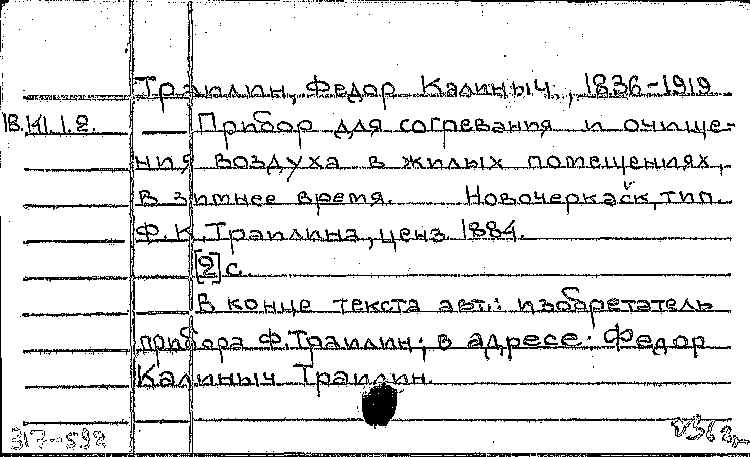 Траилин, Федор Калиныч, 1836-1919
18.VI.1.2. Прибор для согревания и очище-
ния воздуха в жилых помещениях,
в зимнее время. Новочеркасск, тип.
Ф.К.Траилина, ценз. 1884.
[2] с.
В конце текста авт.: изобретатель
прибора Ф.Траилин; в адресе: Федор
Калиныч Траилин.
317-592